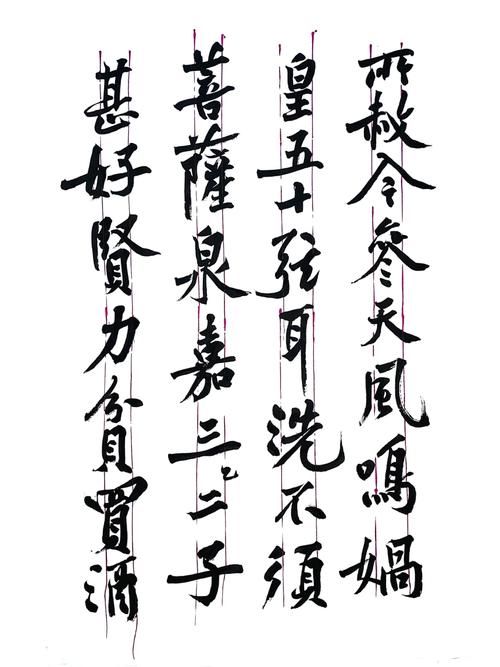 所赦今參天風鳴媧
皇五十弦耳洗不須
菩薩泉嘉三二子
甚好賢力貧買酒